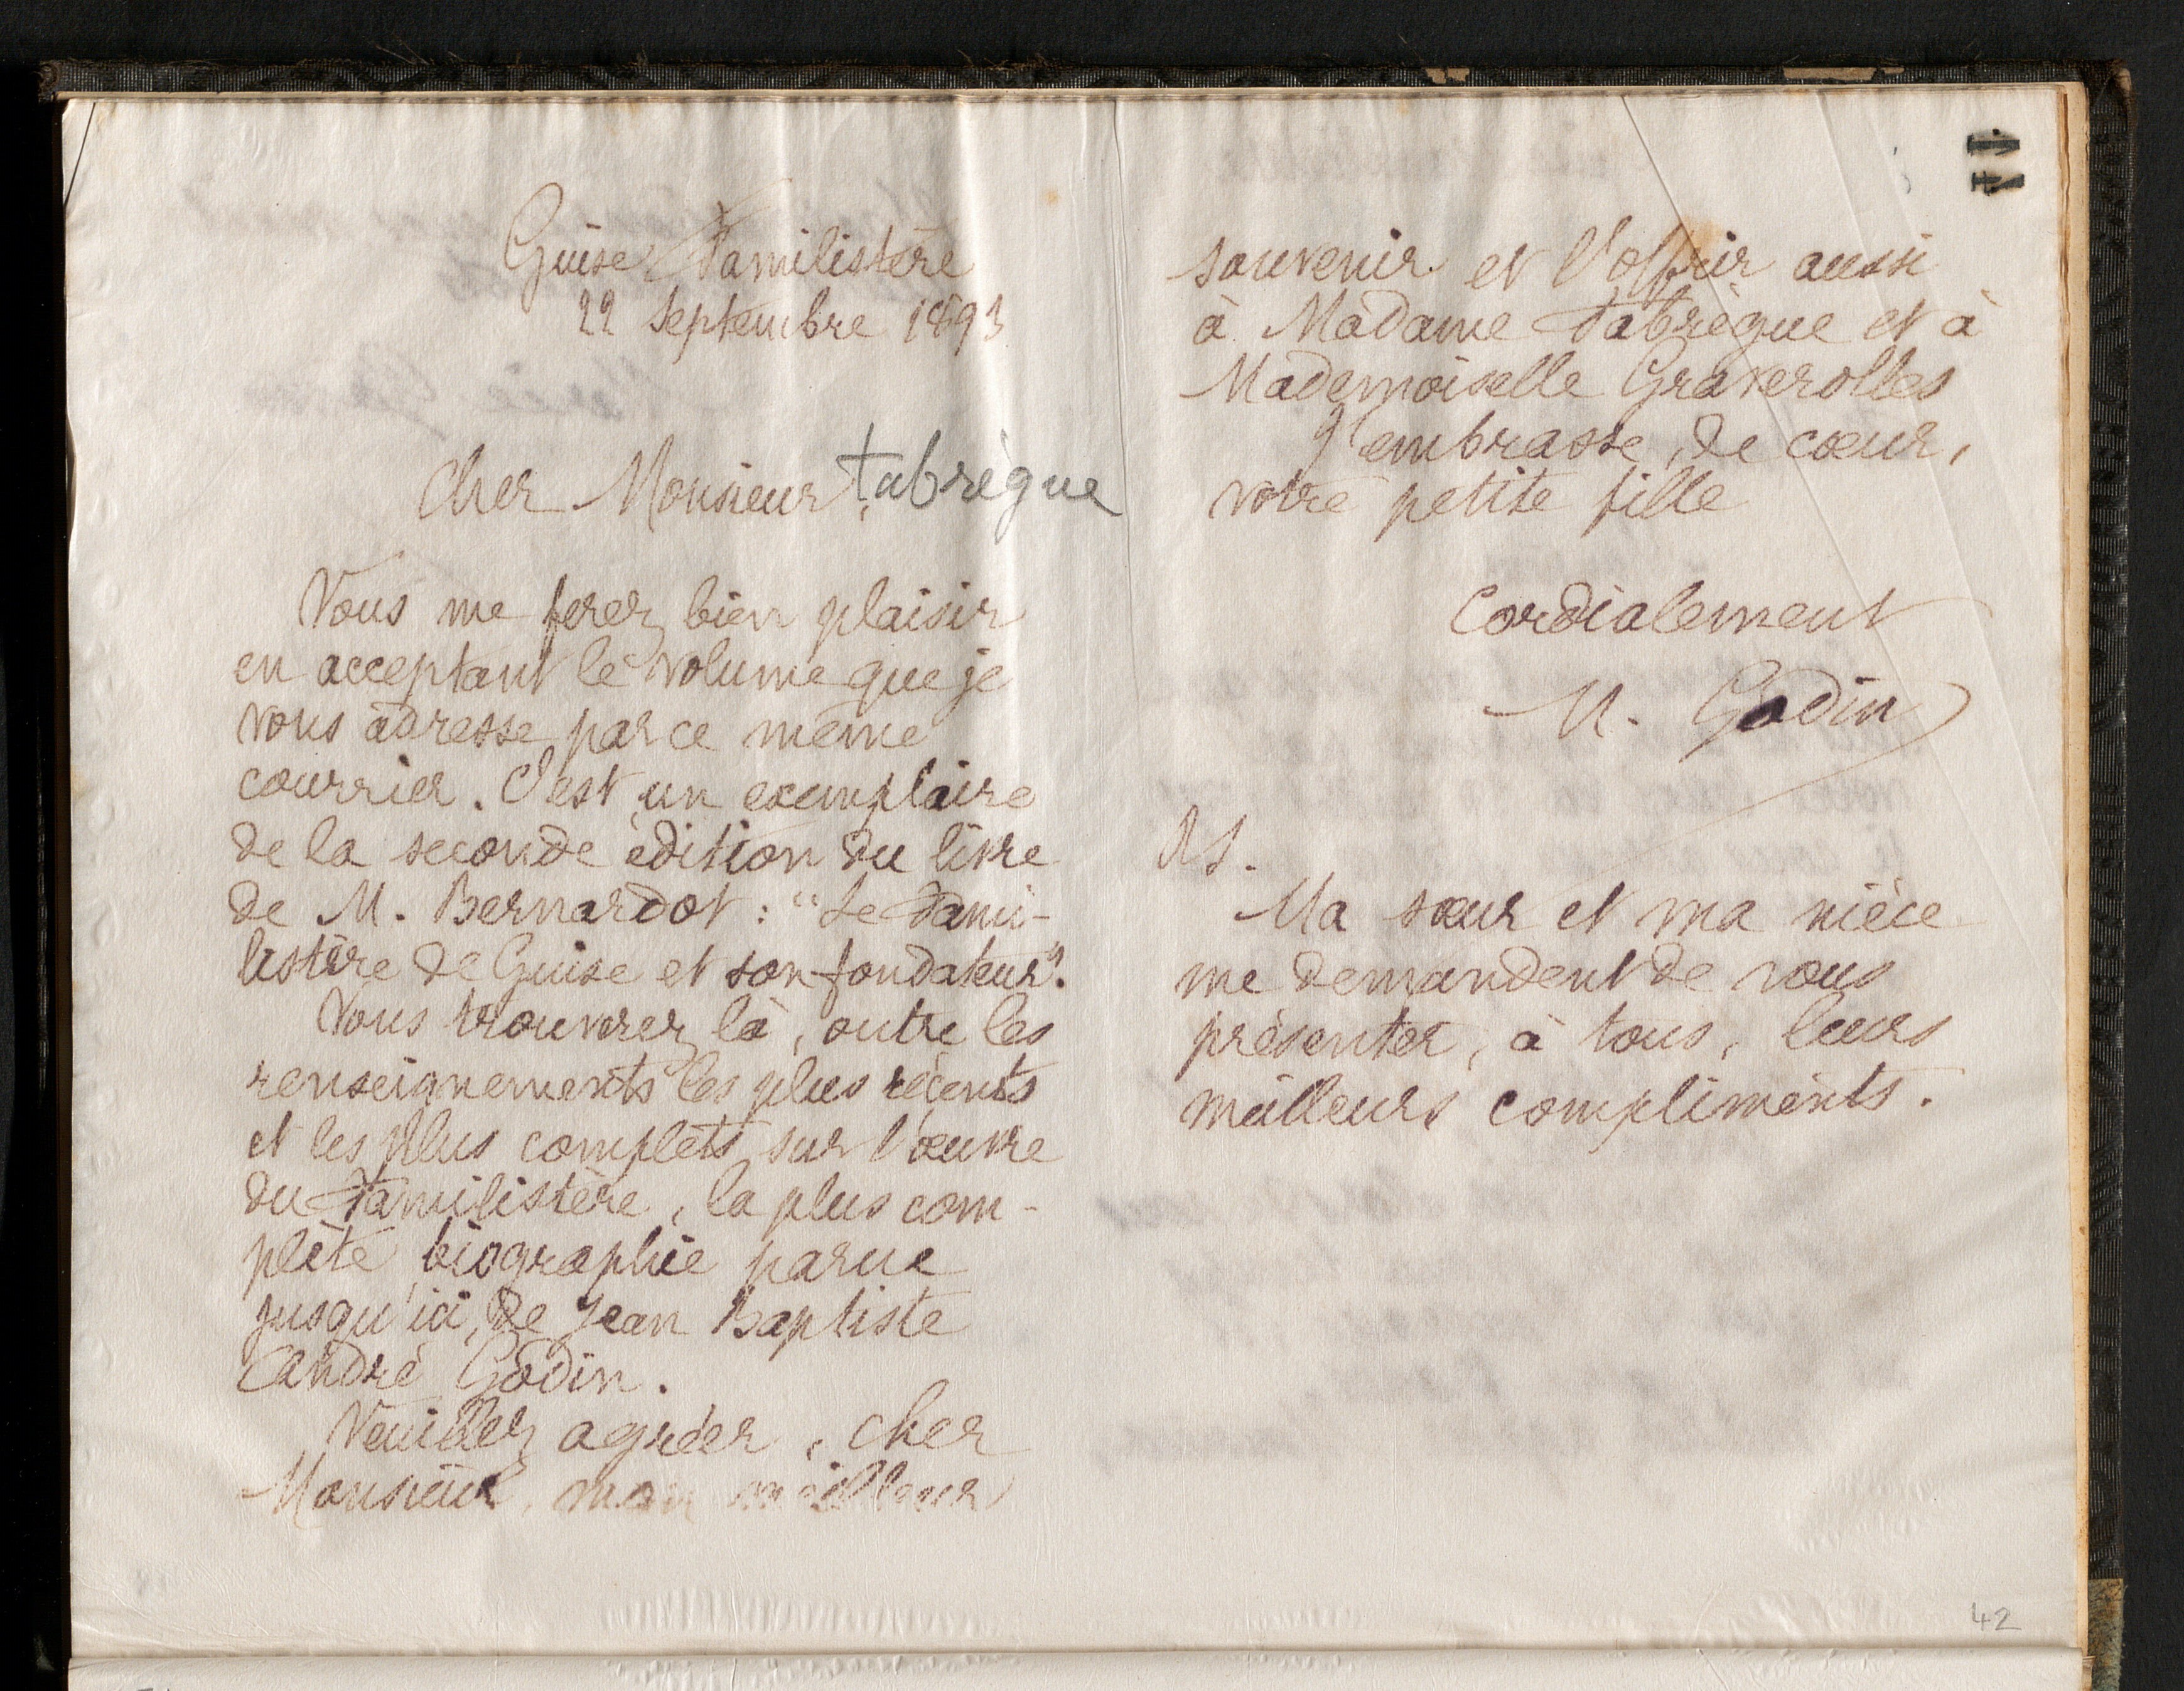 Guise Familistère
22 septembre 1893
Cher Monsieur, Fabrègue
Vous me ferez bien plaisir
en acceptant le volume que je
vous adresse par ce même
courrier. C'est un exemplaire
de la seconde édition du livre
de M. Bernardot : "Le Fami-
listère de Guise et son fondateur".
Vous trouverez là, outre les
renseignements les plus récents
et les plus complets sur l'œuvre
du Familistère, la plus com-
plète biographie parue
jusqu'ici, de Jean Baptiste
André Godin.
Veuillez agréer, cher
Monsieur, mon meilleur
souvenir et l'offrir aussi
à Madame Fabrègue et à
Mademoiselle Graverolles
J'embrasse, de cœur,
votre petite fille
Cordialement
M. Godin
PS.
Ma sœur et ma nièce
me demandent de vous
présenter, à tous, leurs
meilleurs compliments.
42